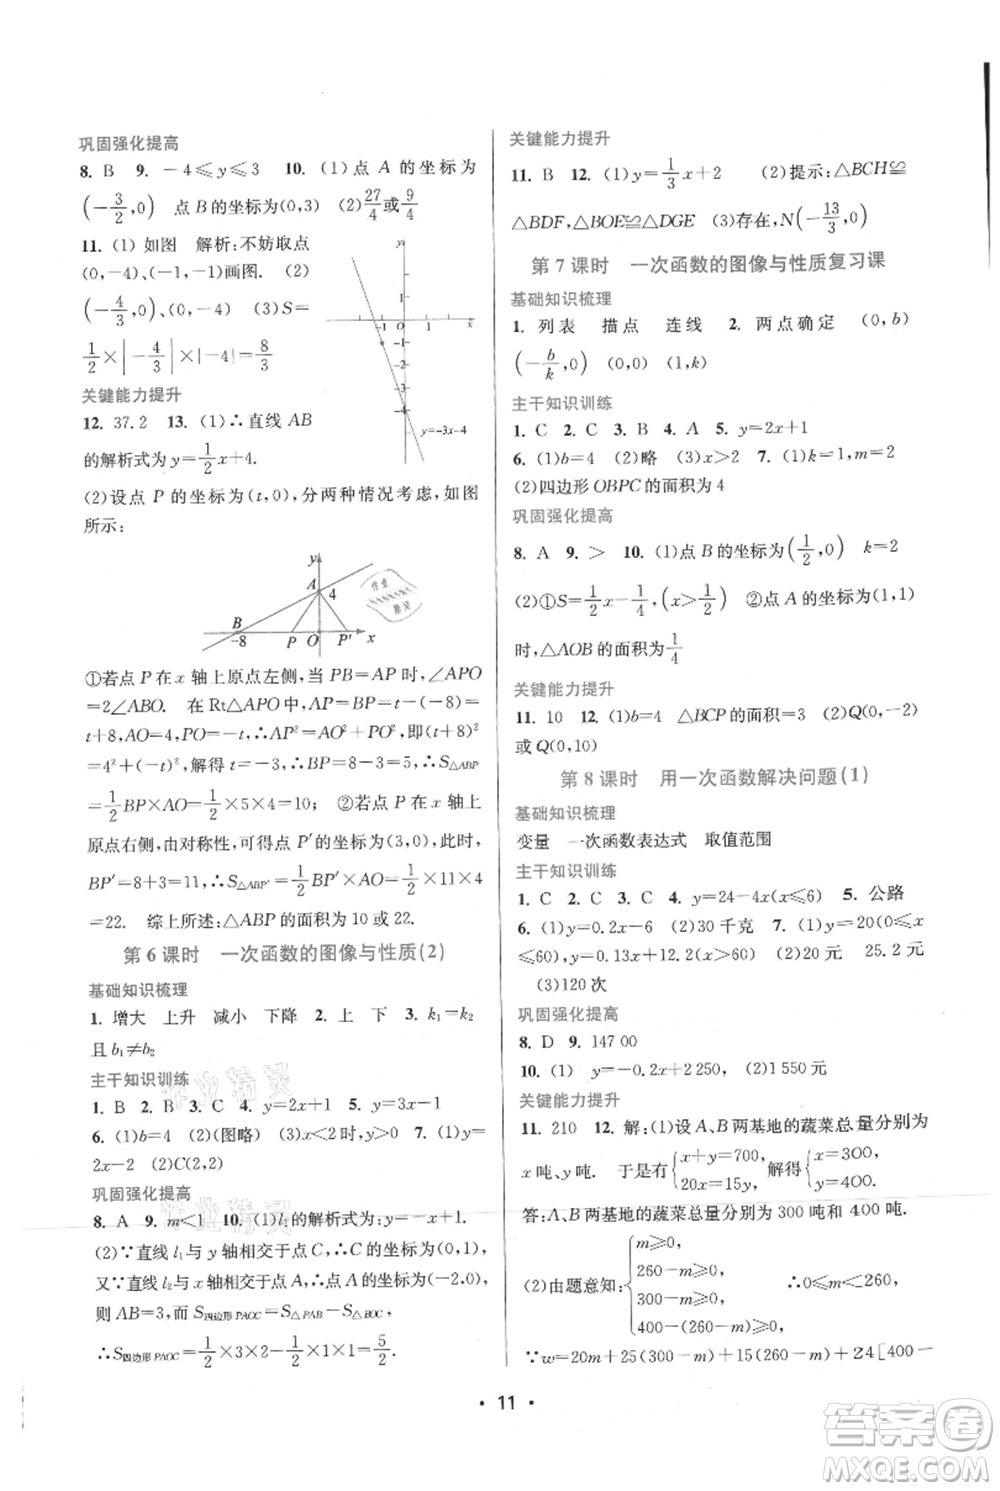 巩固强化提高
8. B 9. －4≤y≤3 10. (1)点 A 的坐标为
(－3/2,0) 点 B 的坐标为(0,3) (2)27/4或9/4
11. (1) 如图 解析:不妨取点
(0,－4)、(－1,－1)画图. (2)
(－4/3,0)、(0,－4) (3)S=
1/2×|－4/3|×|－4|=8/3
y
1
－1 O 1 x
－1
－2
－3
－4
y=－3x－4
关键能力提升
12. 37.2 13. (1)∴直线 AB
的解析式为 y=1/2x+4.
(2)设点 P 的坐标为(t,0),分两种情况考虑,如图
所示:
y
A 4
B －8 P O P′ x
①若点 P 在 x 轴上原点左侧,当 PB=AP 时,∠APO
=2∠ABO. 在 Rt△APO 中,AP=BP=t－(－8)=
t+8,AO=4,PO=－t,∴AP²=AO²+PO²,即(t+8)²
=4²+(－t)². ∴t=－3,∴BP=t+8=5,即 S△ABP
=1/2BP×AO=1/2×5×4=10; ②若点 P 在 x 轴上
原点右侧,由对称性,可得点 P′的坐标为(3,0),此时,
BP′=8+3=11,∴S△ABP′=1/2BP′×AO=1/2×11×4
=22. 综上所述:△ABP 的面积为 10 或 22.
第 6 课时 一次函数的图像与性质(2)
基础知识梳理
1. 增大 上升 减小 下降 2. 上 下 3. k₁=k₂
且 b₁≠b₂
主干知识训练
1. B 2. B 3. C 4. y=2x+1 5. y=3x+1
6. (1)b=4 (2)(图略) (3)x<2 时,y>0 7. (1)y=
2x－2 (2)C(2,2)
巩固强化提高
8. A 9. m<1 10. (1)l₁的解析式为:y=x+2.
(2)∵直线 l₁与 y 轴相交于点 C,∴C 的坐标为(0,2),
又∵直线 l₁与 x 轴相交于点 A,∴A 点的坐标为(－2,0),
则 AB=3,而 S四边形PAOC=S△PAB－S△BOC,
∴S四边形PAOC=1/2×3×2－1/2×1×1=5/2.
关键能力提升
11. B 12. (1)y=1/3x+2 (2)提示:△BCH≌
△BDF,△BOE≌△DGE (3)存在,N(－13/3,0)
第 7 课时 一次函数的图像与性质复习课
基础知识梳理
1. 列表 描点 连线 2. 两点确定 (0,b)
(－b/k,0) (0,0) (1,k)
主干知识训练
1. C 2. C 3. B 4. A 5. y=2x+1
6. (1)b=4 (2)略 (3)x>2 7. (1)k=1,m=2
(2)四边形 OBPC 的面积为 4
巩固强化提高
8. A 9. > 10. (1)点 B 的坐标为(1/2,0) k=2
(2)①S=1/2x－1/4,(x>1/2) ②点 A 的坐标为(1,1)
时,△AOB 的面积为1/4
关键能力提升
11. 10 12. (1)b=4 △BCP的面积=3 (2)Q(0,－2)
或 Q(0,10)
第 8 课时 用一次函数解决问题(1)
基础知识梳理
变量 一次函数表达式 取值范围
主干知识训练
1. C 2. C 3. C 4. y=24－4x(x≤6) 5. 公路
6. (1)y=0.2x－6 (2)30 千克 7. (1)y=0.2x(0≤x
≤60),y=0.13x+12.2(x>60) (2)10 元 25.2 元
(3)120 次
巩固强化提高
8. D 9. 147 00
10. (1) y=－0.2x+2 250, (2)1 550 元
关键能力提升
11. 210 12. 解:(1)设 A、B 两基地的蔬菜总量分别为
x 吨、y 吨. 于是有{x+y=700, 20x=15y, 解得{x=300, y=400.
答:A、B 两基地的蔬菜总量分别为 300 吨和 400 吨.
(2)由题意知:{m≥0, 260－m≥0, 300－m≥0, 400－(260－m)≥0, ∴0≤m≤260,
∵w=20m+25(300－m)+15(260－m)+24[400－
· 11 ·
作业精灵
作业精灵
答案圈
MXQE.COM